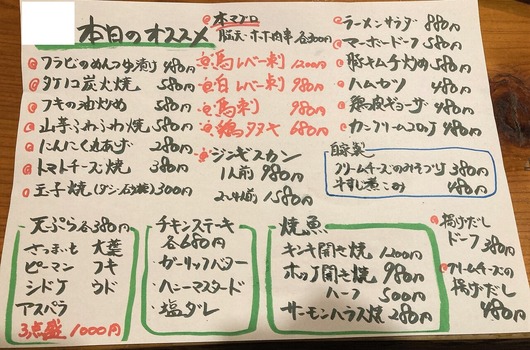 本日のオススメ
ワラビのめんつゆ漬け 480円
タケノコ炭火焼 580円
フキの油炒め 580円
山芋ふわふわ焼 580円
にんにく丸あげ 280円
トマトチーズ焼 380円
玉子焼(ダシ・石少糖)300円
本マグロ
脳天・ホホ肉串 各300円
馬レバー刺 1200円
白レバー刺 980円
馬刺 980円
鶏タタキ 680円
ジンギスカン
1人前 980円
2人前 1580円
ラーメンサラダ 880円
マーボードーフ 580円
豚キムチ炒め 580円
ハムカツ 480円
鶏皮ギョーザ 480円
カニクリームコロッケ 480円
自家製
クリームチーズのみそづけ 380円
牛すじ煮こみ 480円
天ぷら各380円
さつまいも 大葉
ピーマン フキ
シドケ ウド
アスパラ
3点盛 1000円
チキンステーキ
各680円
・ガーリックバター
・ハニーマスタード
・塩ダレ
焼魚
キンキ開き焼 1200円
ホッケ開き焼 980円
ハーフ 500円
サーモンハラス焼 280円
揚げだし
ドーフ 380円
クリームチーズの
揚げだし
480円